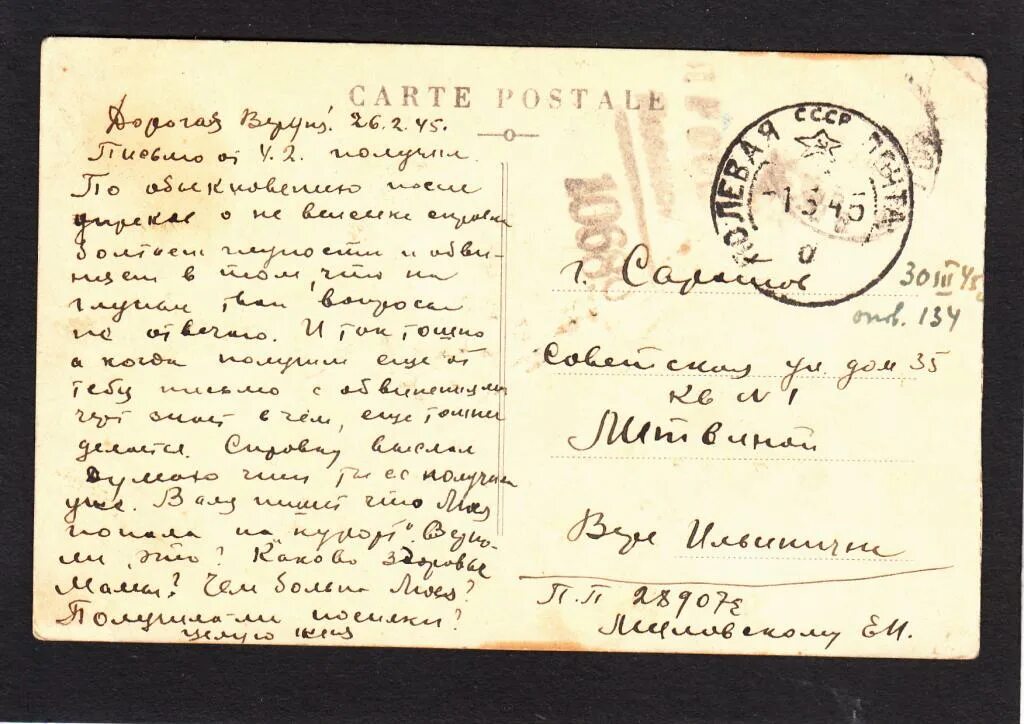 CARTE POSTALE
Дорогая Веруня! 26.2.45.
Письмо от 4.2. получил.
По обыкновению после
о не высылке справки
болтаешь глупости и обви-
няешь в том, что на
глупые твои вопросы
не отвечаю. И так тошно
а когда получишь еще от
тебя письмо с обвинениями
чорт знает в чём, еще тошнее
делается. Справку выслал
думаю что ты ее получила
уже. Валя пишет что Люся
попала на "курорт". Верно-
ли это? Каково здоровье
Мамы? Чем больна Люся?
Получила-ли посылки?
целую
СССР
ПОЛЕВАЯ ПОЧТА
-1 3 45
а
10960
г. Саратов
30 III 45
отв. 134
Советская ул. дом 35
кв N 1
Литвиной
Вере Ильиничне
П.П 28907
Миловскому Е.И.